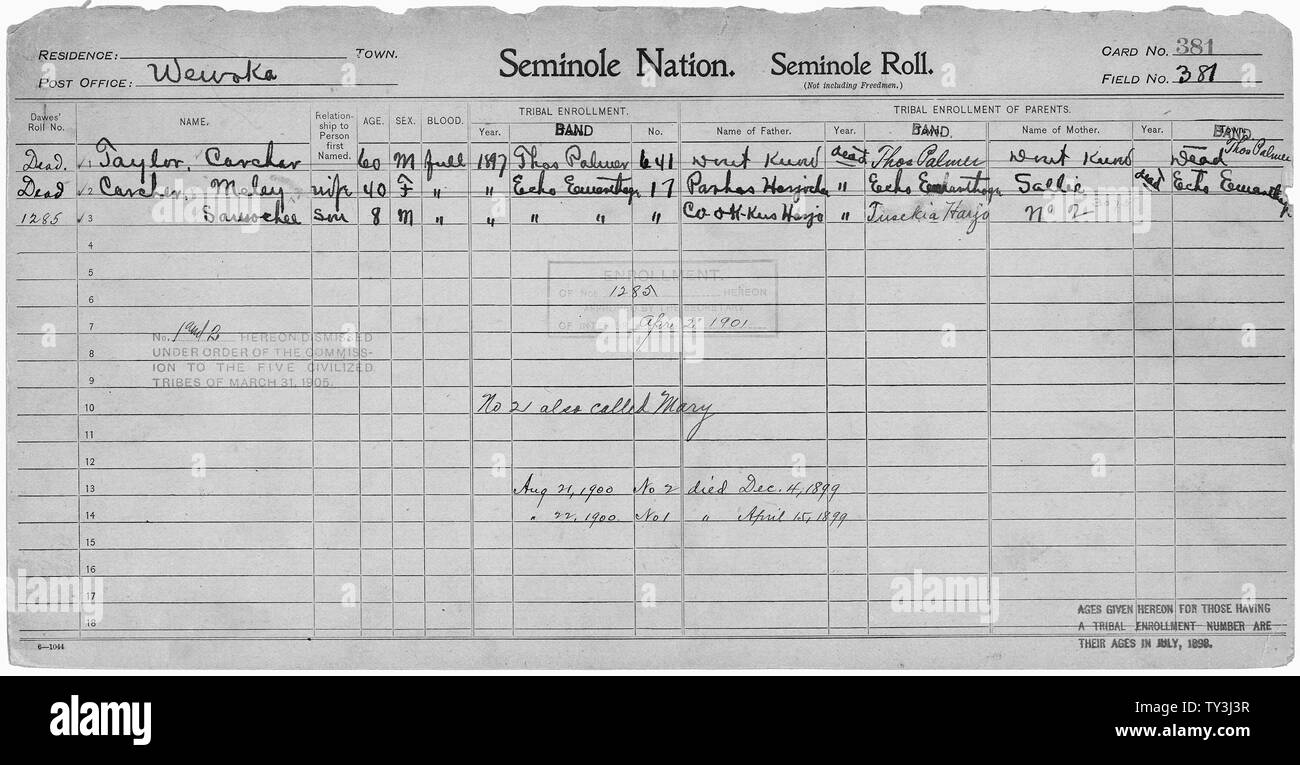 RESIDENCE: TOWN.
POST OFFICE: Wewoka
Seminole Nation. Seminole Roll.
(Not including Freedmen.)
CARD NO. 381
FIELD NO. 381
Dawes' Roll No. NAME. Relationship to Person first Named. AGE. SEX. BLOOD. TRIBAL ENROLLMENT. TRIBAL ENROLLMENT OF PARENTS.
Year. BAND No. Name of Father. Year. BAND. Name of Mother. Year. BAND.
Dead. √1 Taylor, Carchar 60 M full 1897 Thos Palmer 641 Dont Kund dead Thos Palmer Dont Kund Dead Thos Palmer
Dead √2 Carchar, Meley wife 40 F " " Echo 17 " Echo Sallie dead Echo
1285 √3 Sawochee son 8 M " " " " " Harjo " Tusekia Harjo No 2
4
5
ENROLLMENT.
OF NOS. 1285 HEREON
6
APPROVED BY THE SECRETARY
OF INTERIOR Apr 2 1901
7
No. 1 and 2 HEREON DISMISSED
8
UNDER ORDER OF THE COMMIS-
ION TO THE FIVE CIVILIZED
9
TRIBES OF MARCH 31, 1905.
10 No 2 also called Mary
11
12
13 Aug 21, 1900 No 2 died Dec. 4, 1899
14 " 22, 1900 No 1 " April 15, 1899
15
16
17
18
AGES GIVEN HEREON FOR THOSE HAVING
A TRIBAL ENROLLMENT NUMBER ARE
THEIR AGES IN JULY, 1898.
6—1044
alamy
Image ID: TY3J3R
www.alamy.com